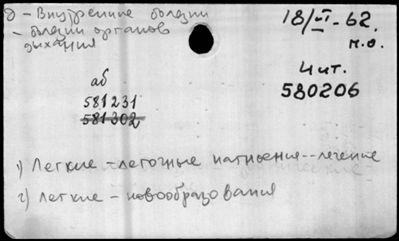 д - Внутренние болезни
- болезни органов
дыхания
18/VI-62.
м.о.
Чит.
580206
аб
581231
581302
1) Легкие - легочные нагноения -- лечение
2) легкие - новообразования